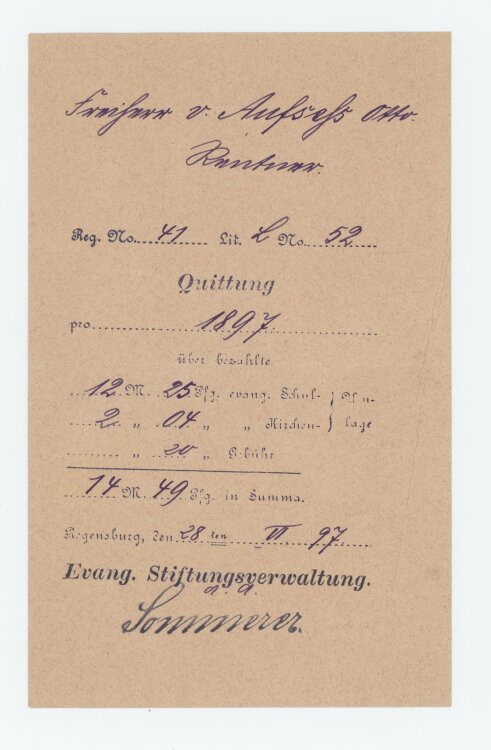 Freiherr v. Aufseß Otto.
Rentner.
Reg. No. 41 Lit. L No. 52
Quittung
pro 1897.
über bezahlte
12 M. 25 Pfg. evang. Schul- } Um-
2. „ 04 „ „ Kirchen- } lage
„ 20 „ Gebühr
14 M. 49 Pfg. in Summa.
Regensburg, den 28 ten VI. 97
Evang. Stiftungsverwaltung.
Sommerer.